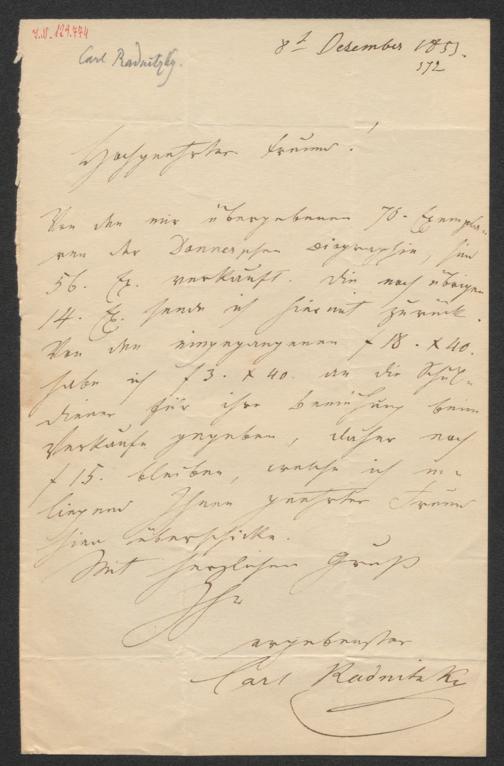 I.N. 129.774
Carl Radnitzky.
8t Dezember 1853.
372
Hochgeehrter Freund!
Von den mir übergebenen 70. Exempla-
ren der Donnerschen Biographie, sind
56. Ex. verkauft. Die noch übrigen
14. Ex. sende ich hiermit zurück.
Von den eingegangenen f 18. x 40.
habe ich f 3. x 40. an die Schul-
diener für ihre Bemühung beim
Verkaufe gegeben, daher noch
f 15. bleiben, welche ich in-
liegend Ihnen geehrter Freund
hier überschicke.
Mit herzlichem Gruß
Ihr
ergebenster
Carl Radnitzky